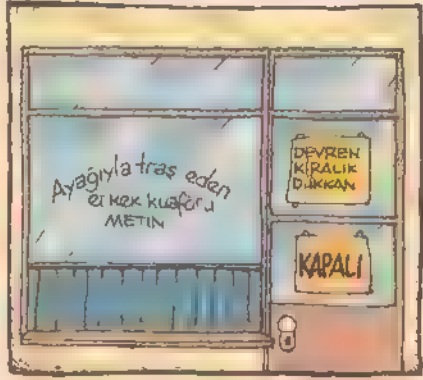 Ayağıyla traş eden
erkek kuaförü
METİN
DEVREN
KİRALIK
DÜKKAN
KAPALI